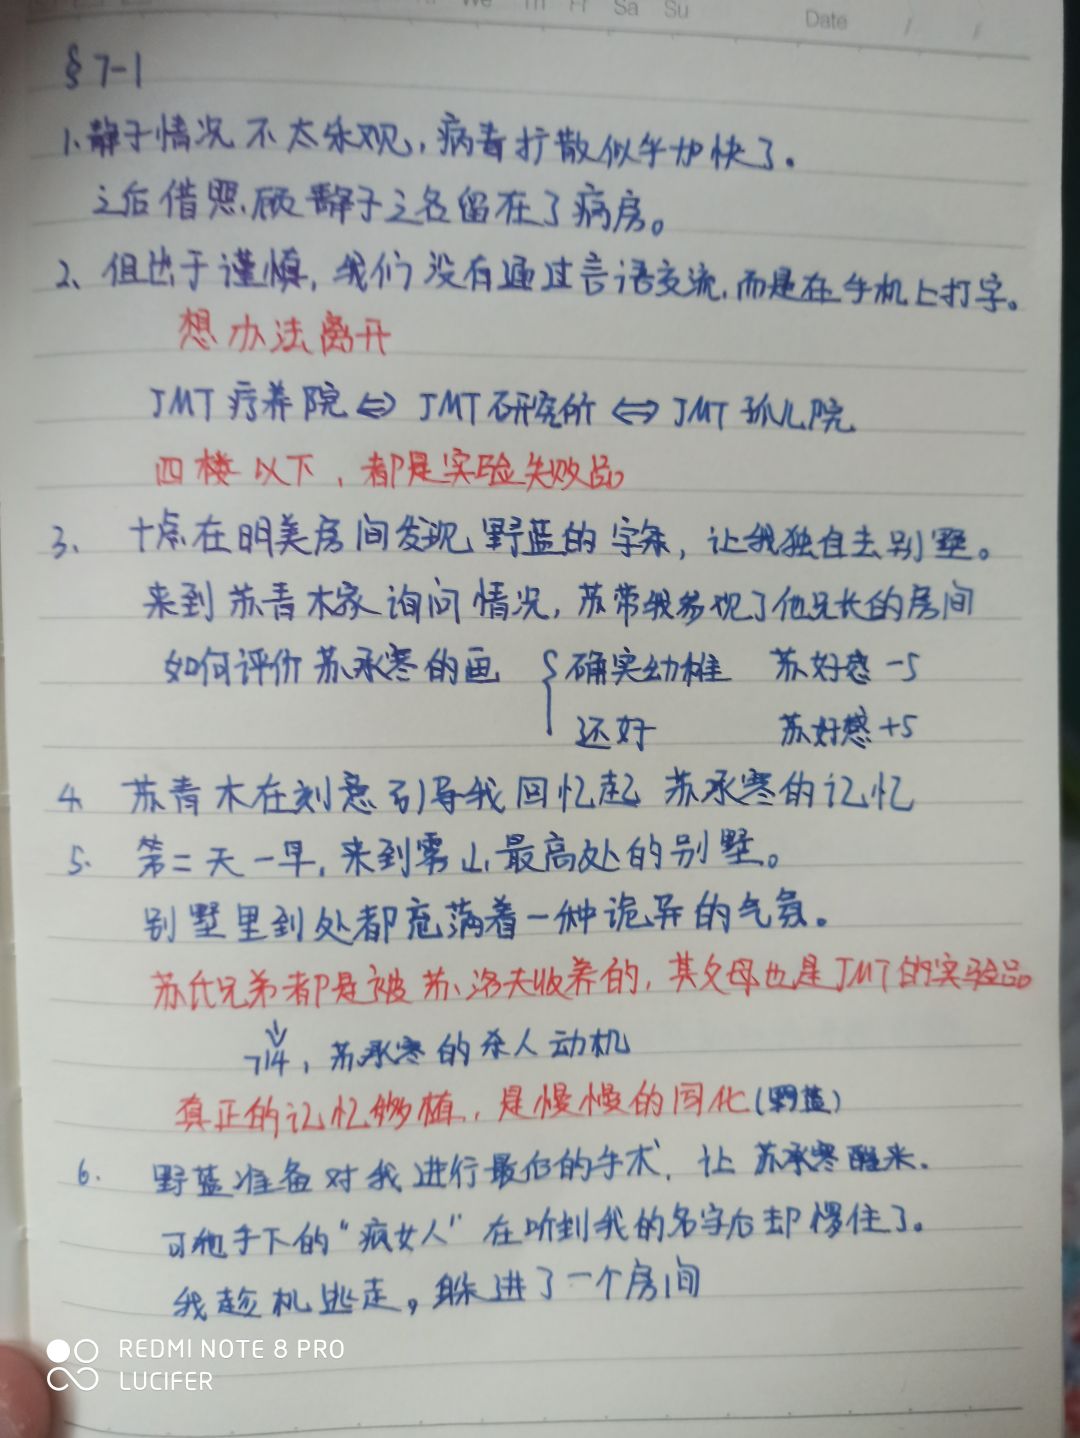 We Th Fr Sa Su
Date / /
§ 7-1
1. 静子情况不太乐观，病毒扩散似乎加快了。
之后借照顾静子之名留在了病房。
2、但出于谨慎，我们没有通过言语交流，而是在手机上打字。
想办法离开
JMT疗养院⇔JMT研究所⇔JMT孤儿院
四楼以下，都是实验失败品
3、十点在明美房间发现野蓝的字条，让我独自去别墅。
来到苏青木家询问情况，苏带我参观了他兄长的房间
如何评价苏承寒的画 { 确实幼稚 苏好感 -5
还好 苏好感 +5
4. 苏青木在刻意引导我回忆起苏承寒的记忆
5. 第二天一早，来到雾山最高处的别墅。
别墅里到处都充满着一种诡异的气氛。
苏氏兄弟都是被苏洛夫收养的，其父母也是JMT的实验品
⇓
714，苏承寒的杀人动机
真正的记忆移植，是慢慢的同化(野蓝)
6. 野蓝准备对我进行最后的手术，让苏承寒醒来.
可他手下的“疯女人”在听到我的名字后却愣住了。
我趁机逃走，躲进了一个房间
REDMI NOTE 8 PRO
LUCIFER